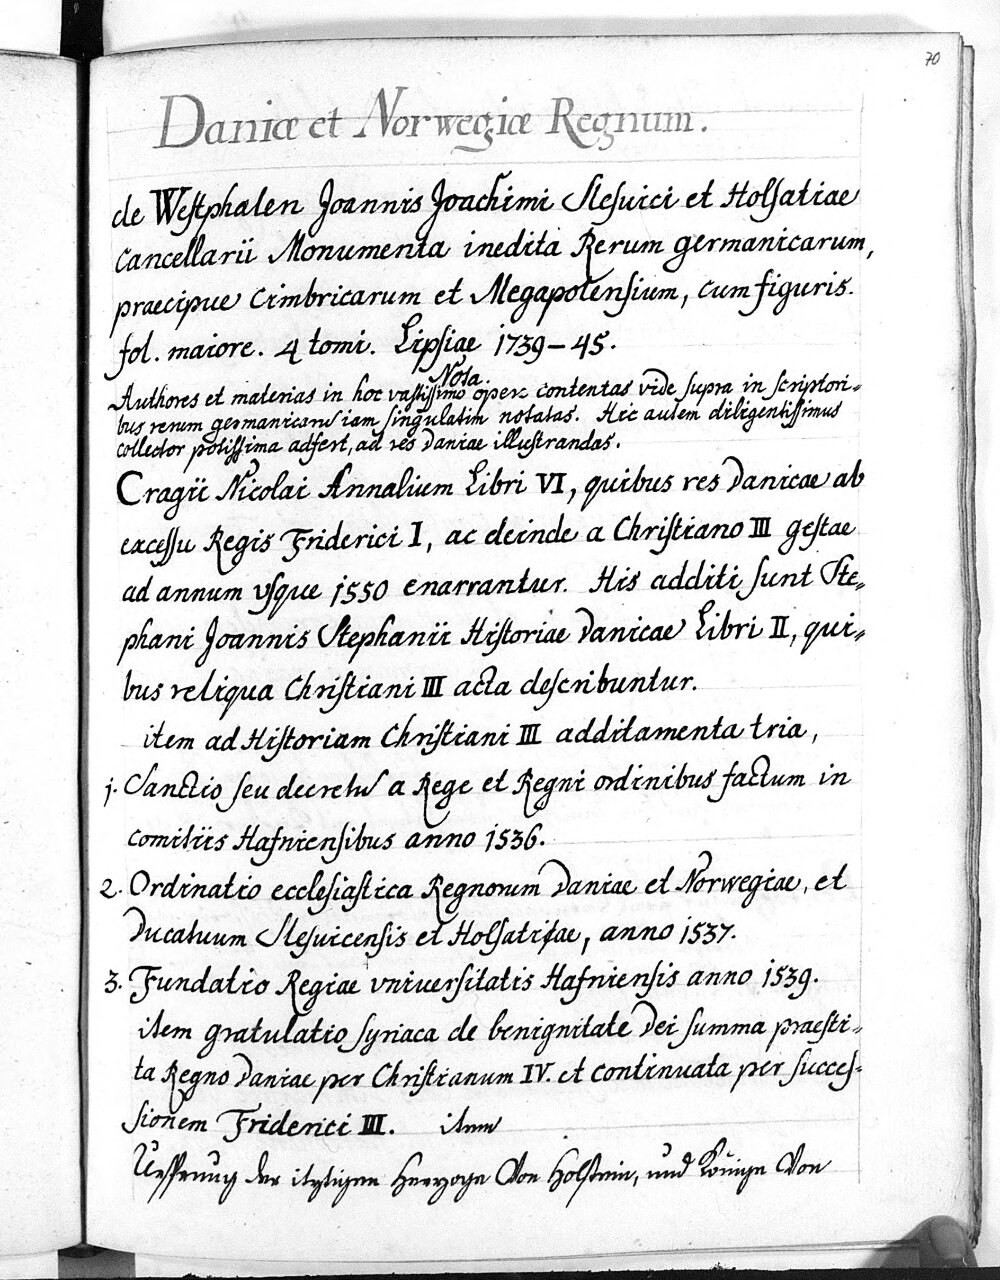 70
Daniæ et Norwegiæ Regnum.
de Westphalen Joannis Joachimi Slesuici et Holsatiae
Cancellarii Monumenta inedita Rerum germanicarum,
praecipue Cimbricarum et Megapolensium, cum figuris.
fol. maiore. 4 tomi. Lipsiae 1739–45.
Nota.
Authores et materias in hoc vastissimo opere contentas vide supra in scriptori-
bus rerum germanicarum iam singulatim notatas. Hic autem diligentissimus
collector potissima adfert, ad res Daniae illustrandas.
Cragii Nicolai Annalium Libri VI, quibus res Danicae ab
excessu Regis Friderici I, ac deinde a Christiano III gestae
ad annum vsque 1550 enarrantur. His additi sunt Ste-
phani Joannis Stephanii Historiae Danicae Libri II, qui-
bus reliqua Christiani III acta describuntur.
item ad Historiam Christiani III additamenta tria,
1. Sanctio seu decretum a Rege et Regni ordinibus factum in
comitiis Hafniensibus anno 1536.
2. Ordinatio ecclesiastica Regnorum Daniae et Norwegiae, et
Ducatuum Slesuicensis et Holsatiae, anno 1537.
3. Fundatio Regiae vniuersitatis Hafniensis anno 1539.
item gratulatio syriaca de benignitate Dei summa praesti-
ta Regno Daniae per Christianum IV. et continuata per succes-
sionem Friderici III. item
Ursprung der itztigen Hertzoge Von Holstein, und Könige Von